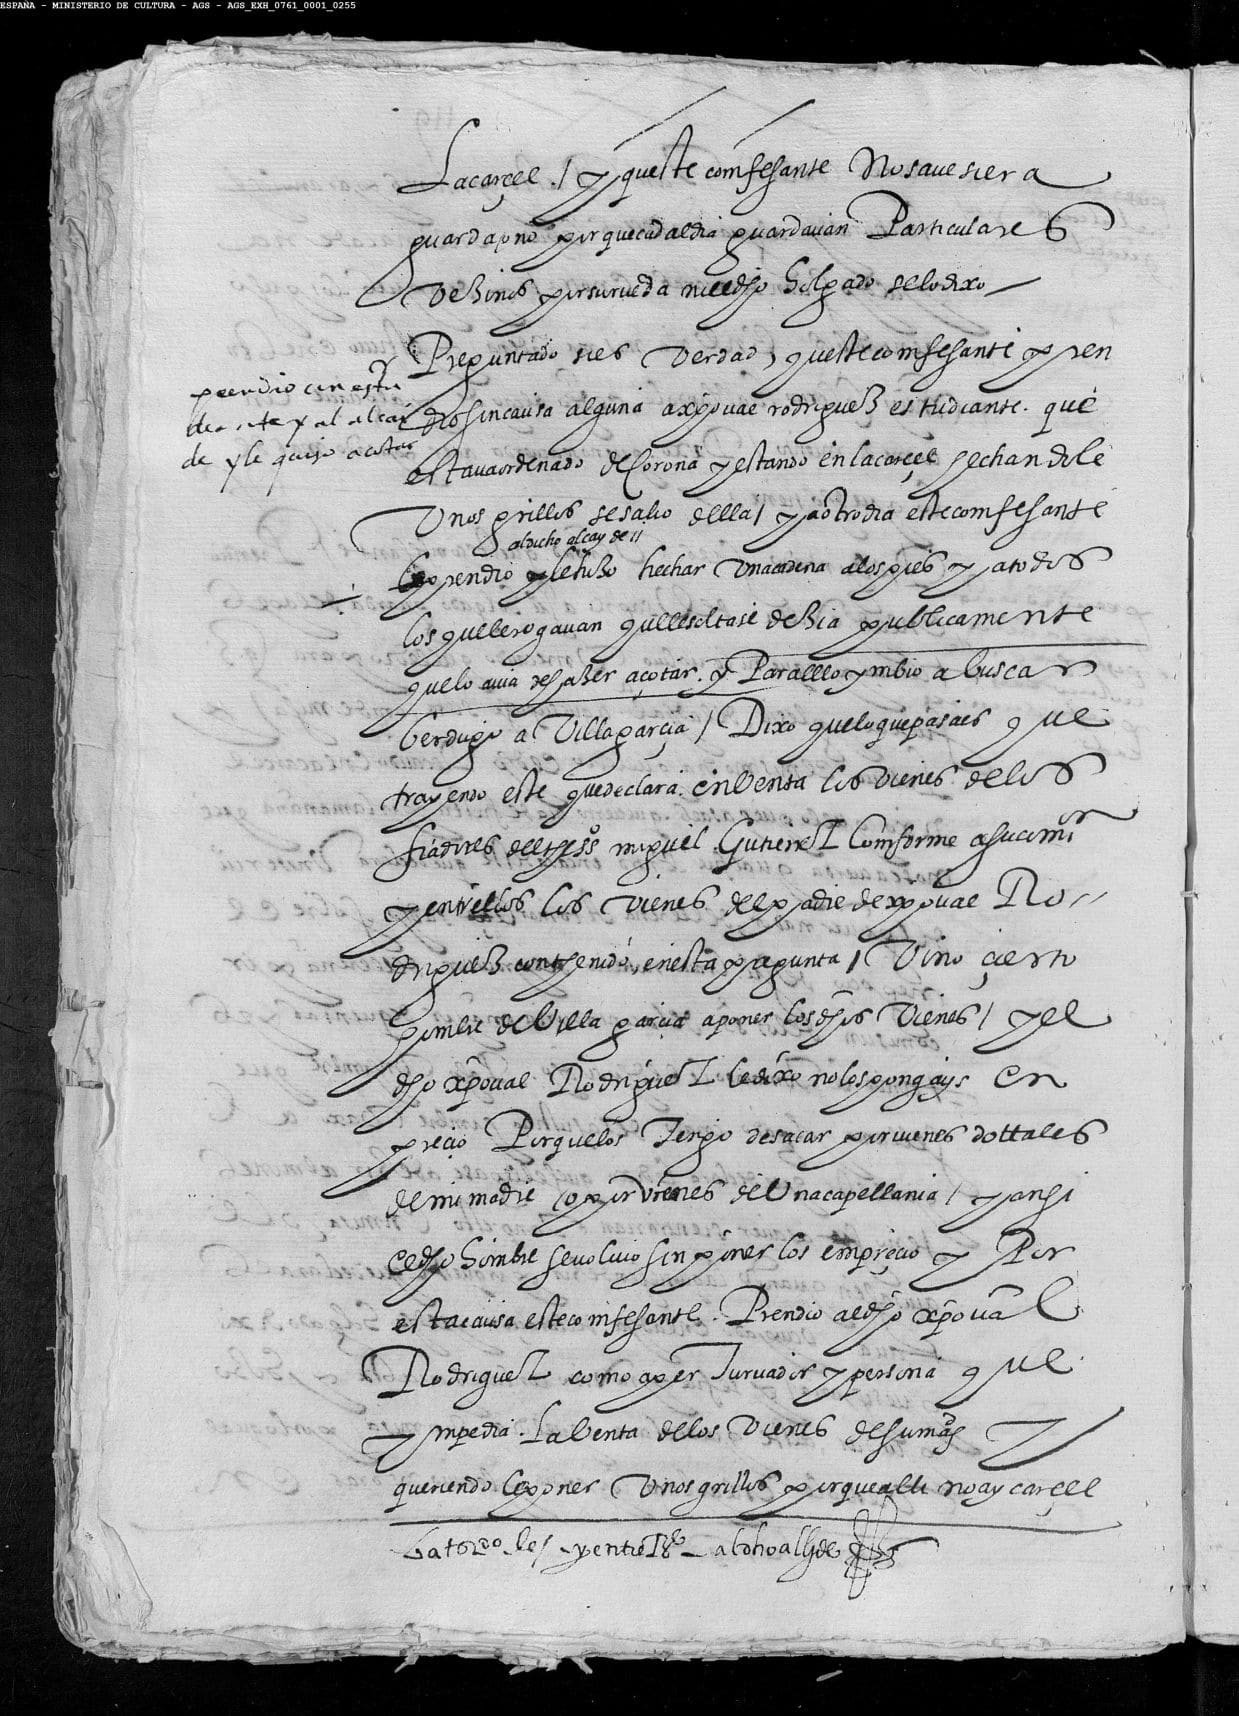 ESPAÑA - MINISTERIO DE CULTURA - AGS - AGS_EXH_0761_0001_0255
La carçel / y queste comfesante no save si era
guarda o no porque cada dia guardavan Particulares
vezinos por su rueda ni el dho holgado se lo dixo
Preguntado si es verdad queste comfesante pren
dio sin causa alguna a xpoual rodriguez estudiante que
estava ordenado de corona y estando en la carçel hechandole
Unos grillos se salio della / y a otro dia este comfesante
al dicho alcayde //
prendio y le hizo hechar una cadena a los pies y a todos
los que le rogavan que le soltase dezia publicamente
que lo avia de hazer açotar y Para ello ymbio a buscar
Verdugo a Villagarçia / Dixo que lo que pasa es que
trayendo este que declara en venta los vienes de los
fiadores del miguel Gutierrez Comforme a su comi
y entrellos los vienes del padre de xpoval Ro
driguez contenido en esta pregunta / Vino çierto
hombre de Villa garcia a poner los dhos Vienes / y el
dho xpoual Rodriguez le dixo no los pongays en
preçio Porque los Tengo de sacar por vienes dottales
de mi madre o por vienes de Una capellania / y ansi
el dho hombre se volvio sin poner los em preçio y Por
esta causa este comfesante Prendio al dho xpoval
Rodriguez como a perturvador y persona que
ympedia La Venta de los Vienes de su mag y
queriendo le poner Unos grillos porque alli no ay carçel
prendio a un estu
diante y al alcai
de y le quiso açotar
va t do le / y entre Rs al dho allde